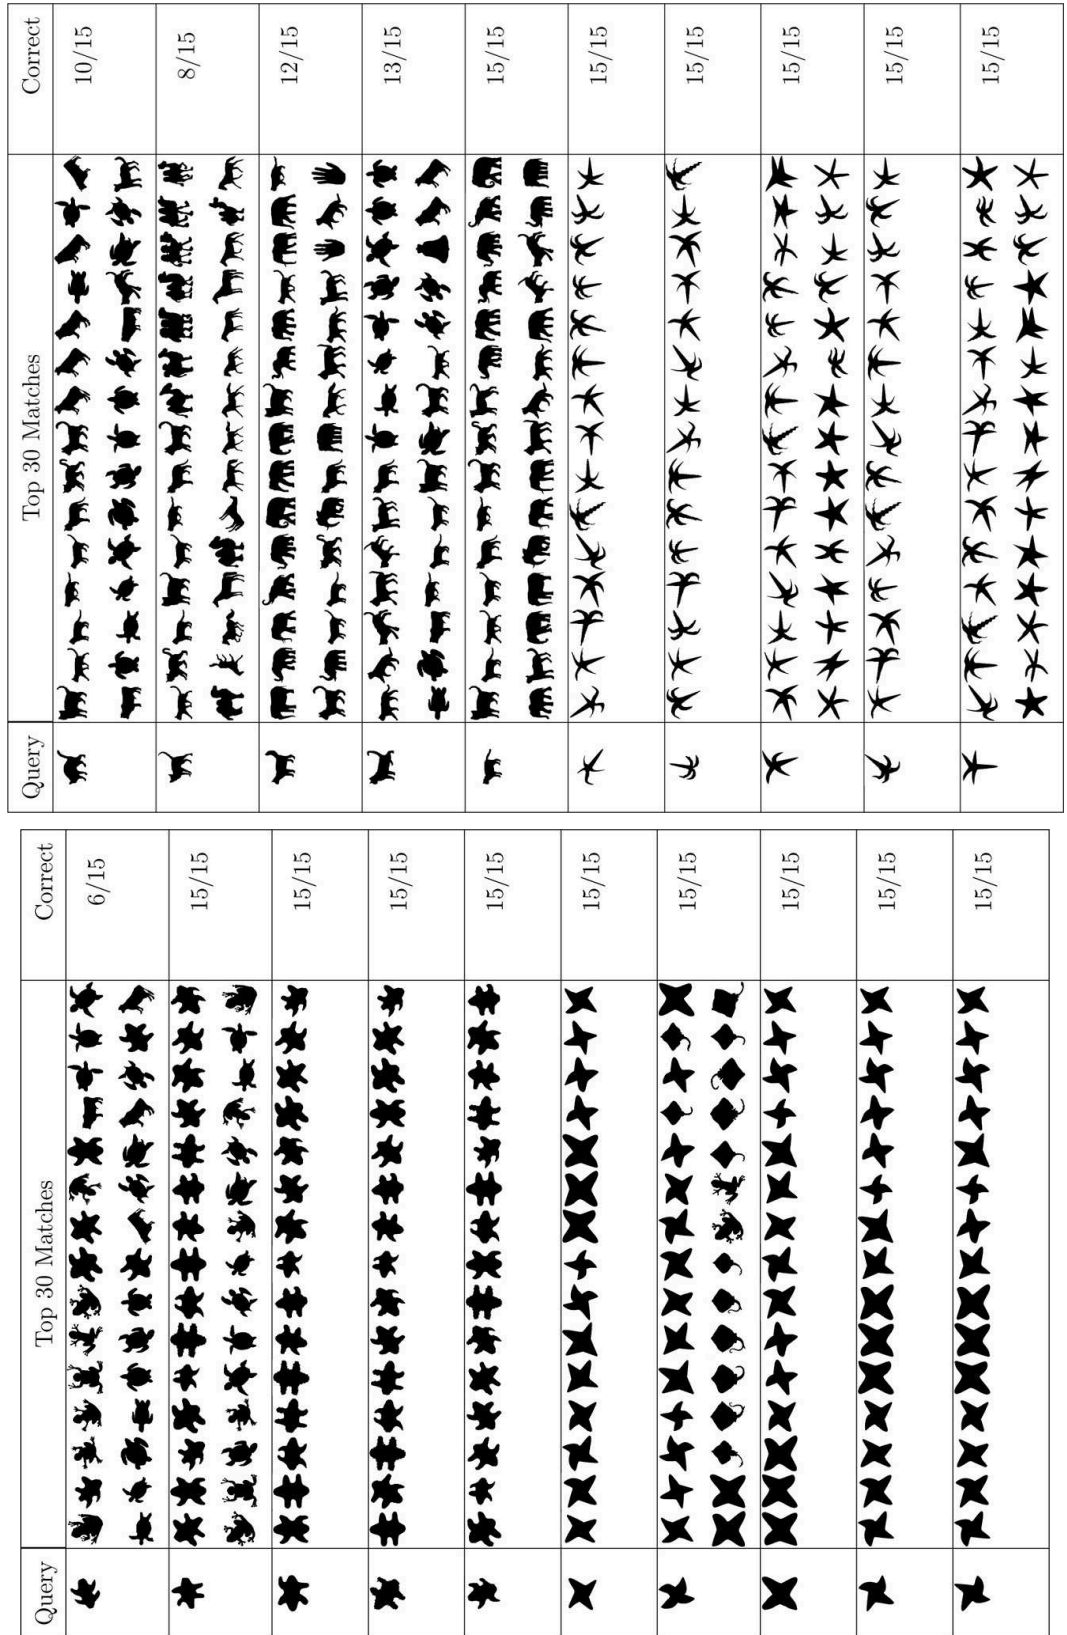 Query Top 30 Matches Correct
10/15
8/15
12/15
13/15
15/15
15/15
15/15
15/15
15/15
15/15
Query Top 30 Matches Correct
6/15
15/15
15/15
15/15
15/15
15/15
15/15
15/15
15/15
15/15